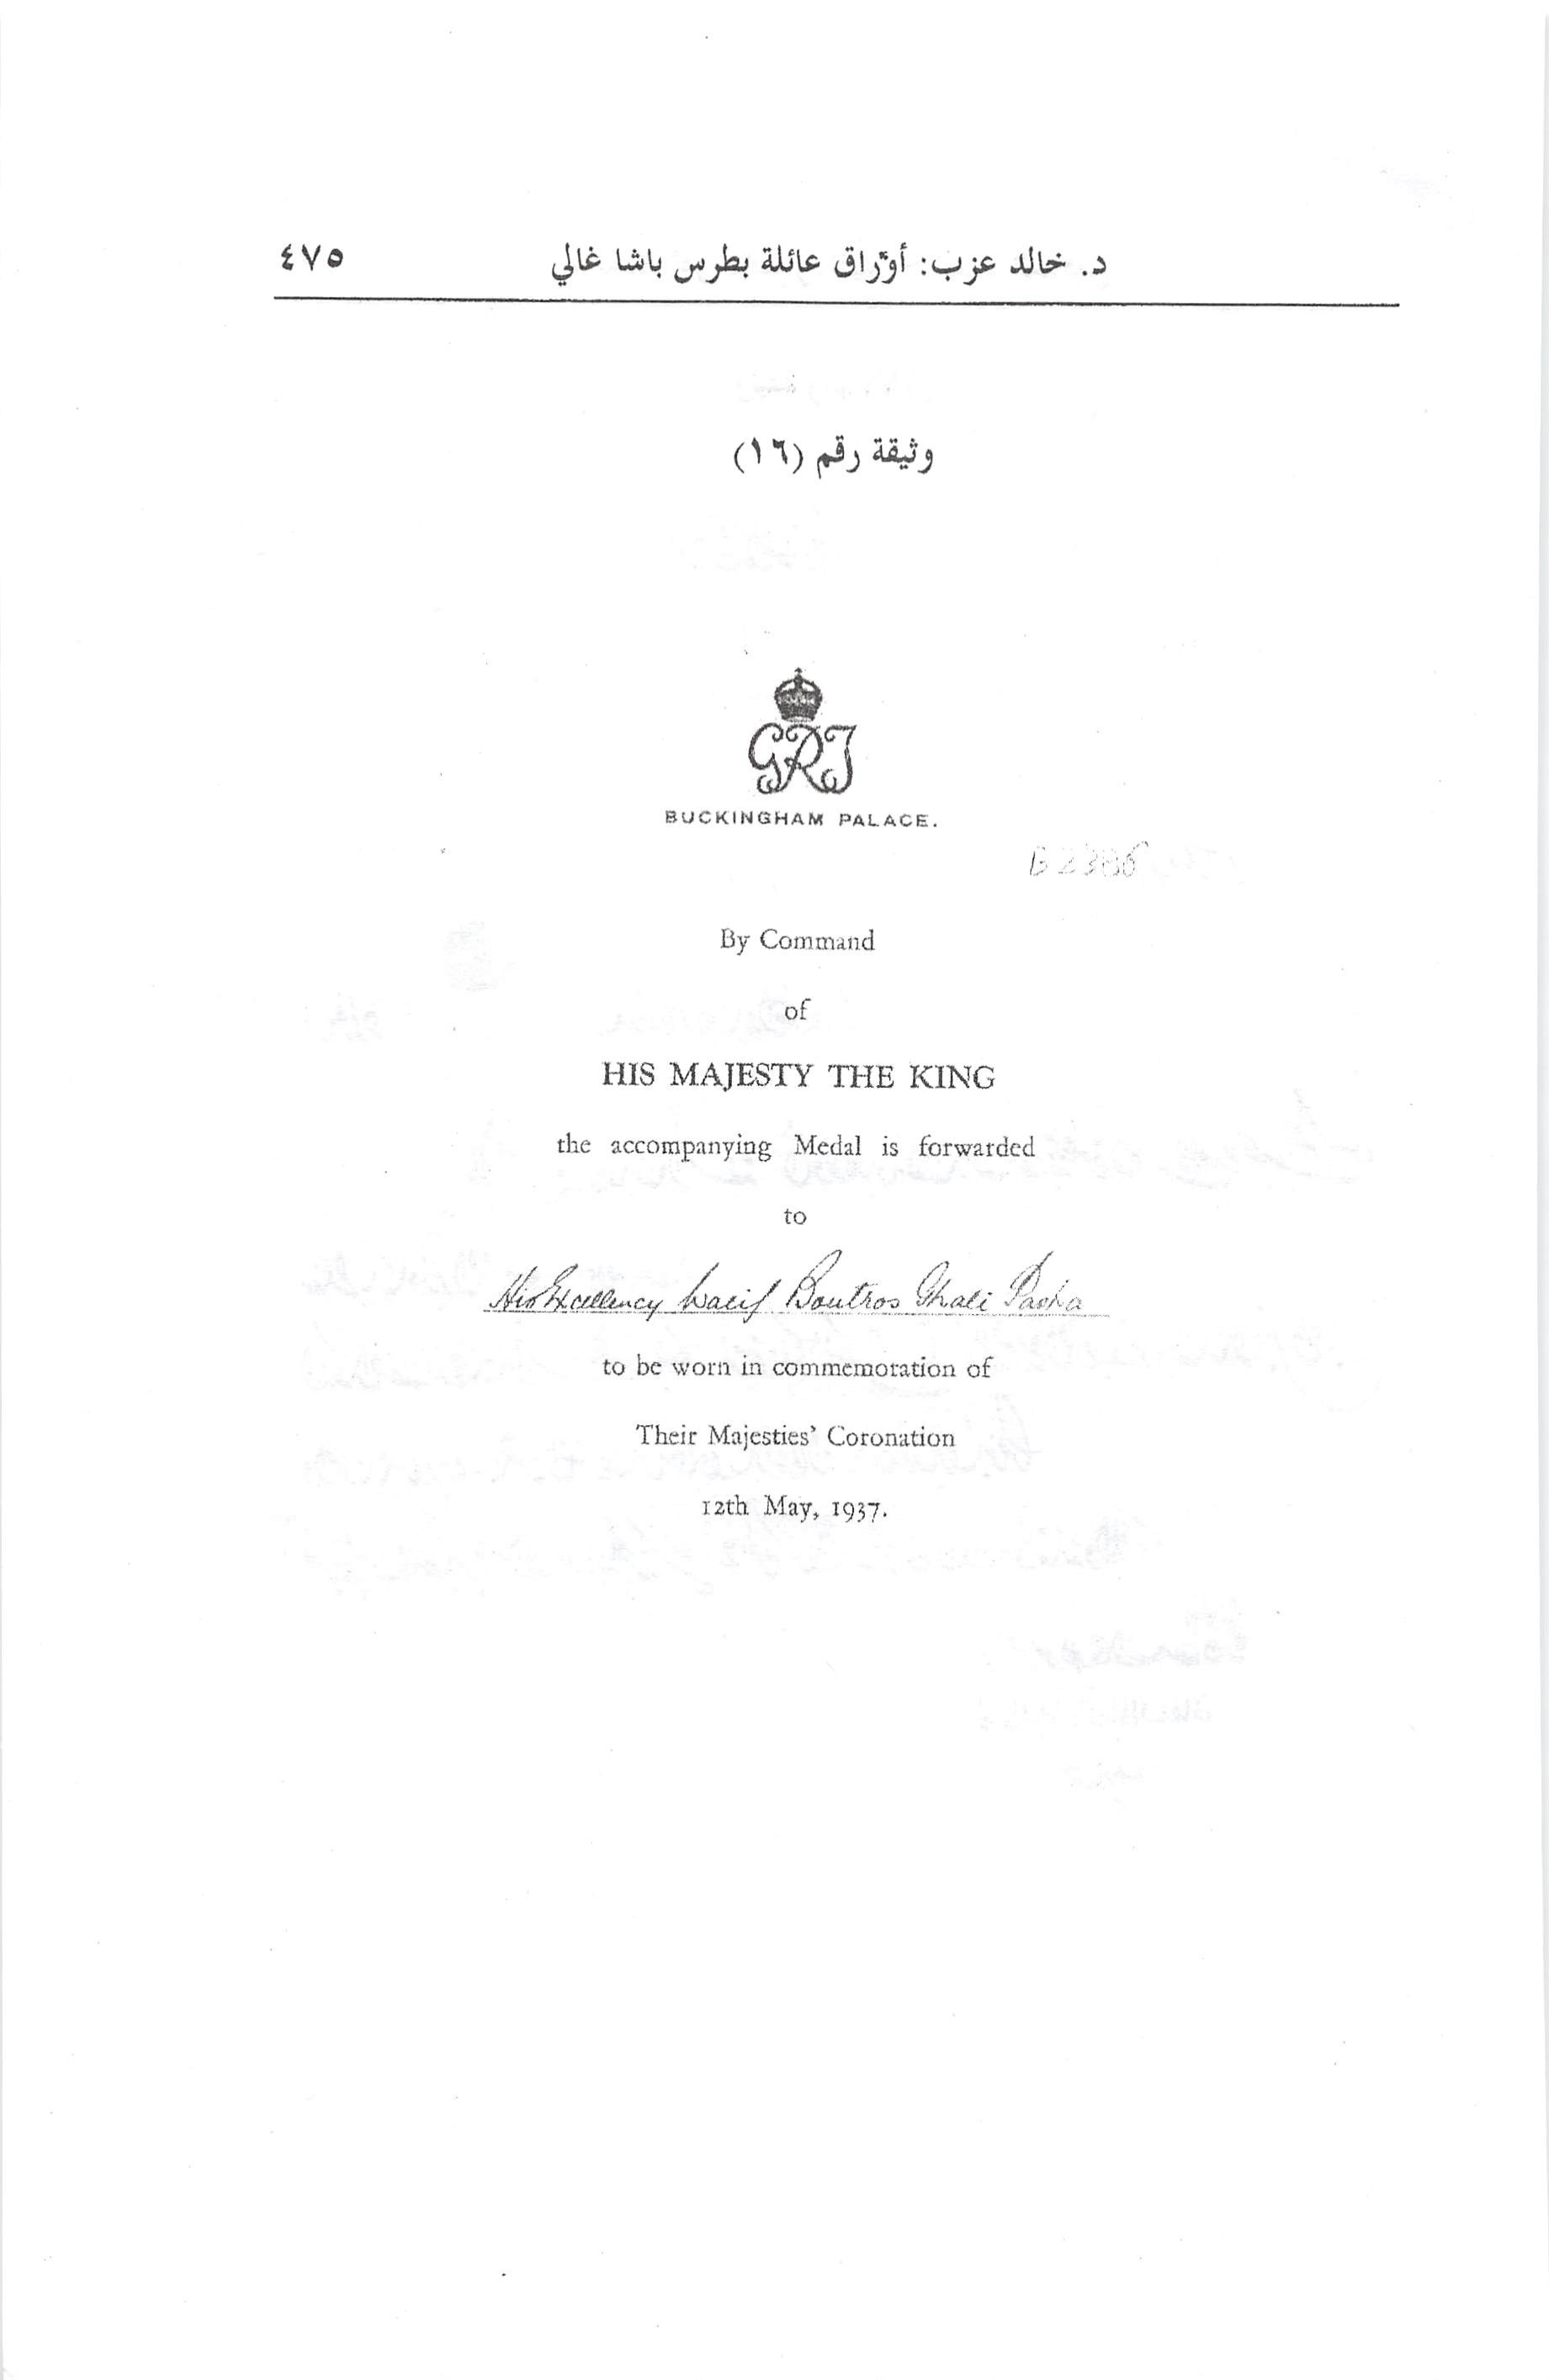 د. خالد عزب: أوراق عائلة بطرس باشا غالي ٤٧٥
وثيقة رقم (١٦)
GRI
BUCKINGHAM PALACE.
B2386
By Command
of
HIS MAJESTY THE KING
the accompanying Medal is forwarded
to
His Excellency Wacif Boutros Ghali Pasha
to be worn in commemoration of
Their Majesties' Coronation
12th May, 1937.